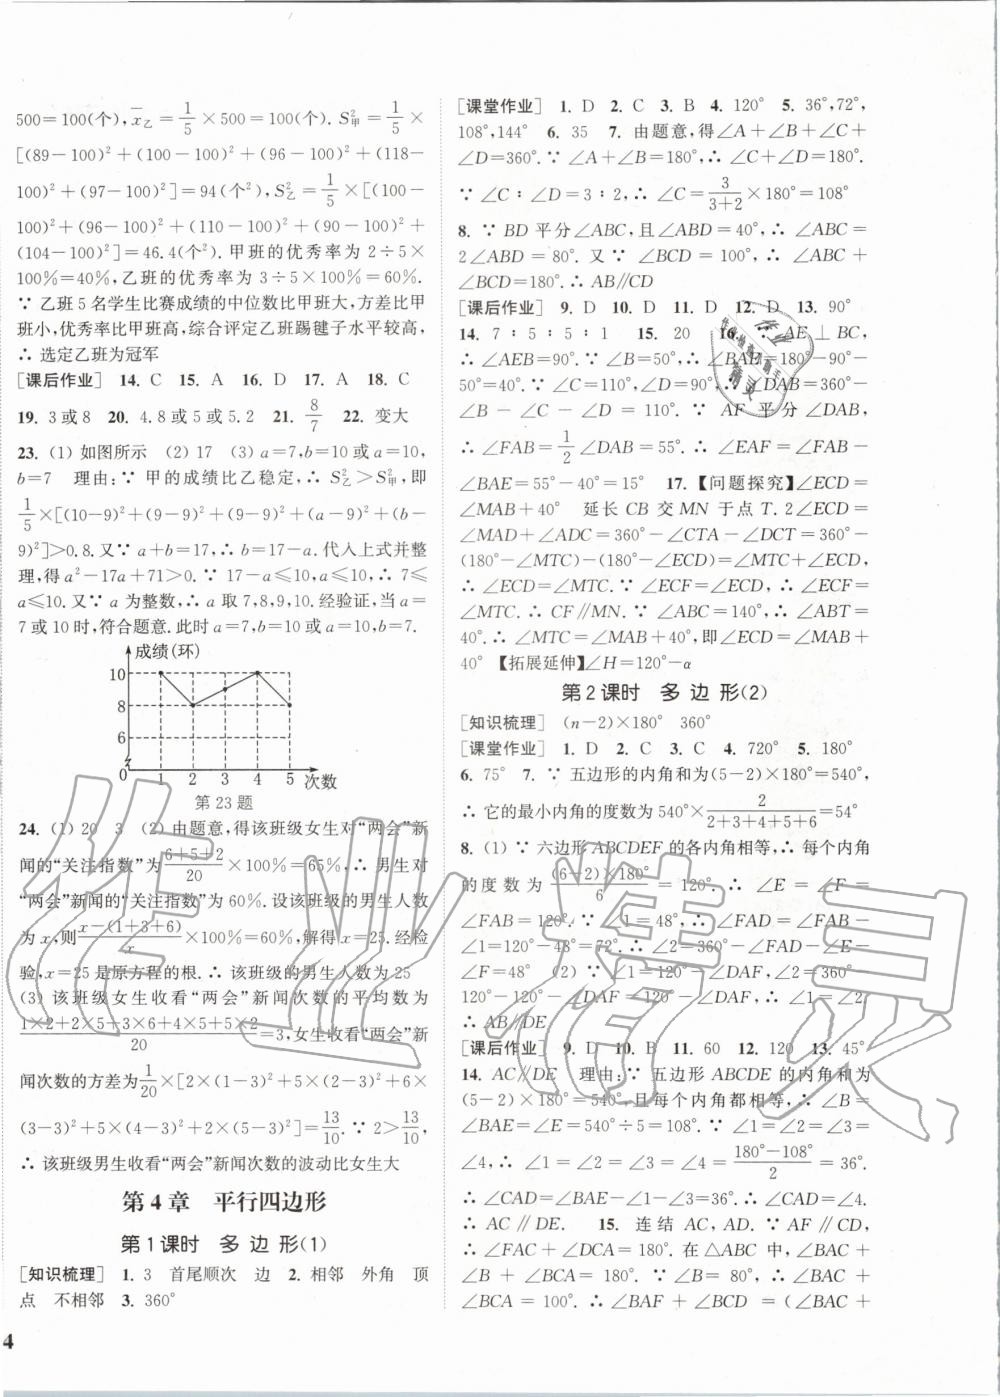 500=100(个),x̄乙=1/5×500=100(个).S²甲=1/5×
[(89-100)²+(100-100)²+(96-100)²+(118-
100)²+(97-100)²]=94(个²),S²乙=1/5×[(100-
100)²+(96-100)²+(110-100)²+(90-100)²+
(104-100)²]=46.4(个²).甲班的优秀率为2÷5×
100%=40%,乙班的优秀率为3÷5×100%=60%.
∵乙班5名学生比赛成绩的中位数比甲班大,方差比甲
班小,优秀率比甲班高,综合评定乙班踢毽子水平较高,
∴选定乙班为冠军
[课后作业] 14. C 15. A 16. D 17. A 18. C
19. 3或8 20. 4.8或5或5.2 21. 8/7 22. 变大
23. (1) 如图所示 (2) 17 (3) a=7,b=10或a=10,
b=7 理由:∵甲的成绩比乙稳定,∴S²乙>S²甲,即
1/5×[(10-9)²+(9-9)²+(9-9)²+(a-9)²+(b-
9)²]>0.8.又∵a+b=17,∴b=17-a.代入上式并整
理,得a²-17a+71>0.∵17-a≤10,∴a≥7.∴7≤
a≤10.又∵a为整数,∴a取7,8,9,10.经验证,当a=
7或10时,符合题意.此时a=7,b=10或a=10,b=7.
成绩(环)
10
8
6
0 1 2 3 4 5 次数
第23题
24. (1) 20 3 (2) 由题意,得该班级女生对“两会”新
闻的“关注指数”为(6+5+2)/20×100%=65%,∴男生对
“两会”新闻的“关注指数”为60%.设该班级的男生人数
为x,则(x-(1+3+6))/x×100%=60%,解得x=25.经检
验,x=25是原方程的根.∴该班级的男生人数为25
(3) 该班级女生收看“两会”新闻次数的平均数为
(1×2+2×5+3×6+4×5+5×2)/20=3,女生收看“两会”新
闻次数的方差为1/20×[2×(1-3)²+5×(2-3)²+6×
(3-3)²+5×(4-3)²+2×(5-3)²]=13/10.∵2>13/10,
∴该班级男生收看“两会”新闻次数的波动比女生大
第4章 平行四边形
第1课时 多边形(1)
[知识梳理] 1. 3 首尾顺次 边 2. 相邻 外角 顶
点 不相邻 3. 360°
4
[课堂作业] 1. D 2. C 3. B 4. 120° 5. 36°,72°,
108°,144° 6. 35 7. 由题意,得∠A+∠B+∠C+
∠D=360°.∵∠A+∠B=180°,∴∠C+∠D=180°.
∵∠C∶∠D=3∶2,∴∠C=3/(3+2)×180°=108°
8. ∵BD平分∠ABC,且∠ABD=40°,∴∠ABC=
2∠ABD=80°.又∵∠BCD=100°,∴∠ABC+
∠BCD=180°.∴AB∥CD
[课后作业] 9. D 10. D 11. D 12. D 13. 90°
14. 7∶5∶5∶1 15. 20 16. ∵AE⊥BC,
∴∠AEB=90°.∵∠B=50°,∴∠BAE=180°-90°-
50°=40°.∵∠C=110°,∠D=90°,∴∠DAB=360°-
∠B-∠C-∠D=110°.∵AF平分∠DAB,
∴∠FAB=1/2∠DAB=55°.∴∠EAF=∠FAB-
∠BAE=55°-40°=15° 17. 【问题探究】∠ECD=
∠MAB+40° 延长CB交MN于点T.2∠ECD=
∠MAD+∠ADC=360°-∠CTA-∠DCT=360°-
(180°-∠MTC)-(180°-∠ECD)=∠MTC+∠ECD,
∴∠ECD=∠MTC.∵∠ECF=∠ECD,∴∠ECF=
∠MTC.∴CF∥MN.∵∠ABC=140°,∴∠ABT=
40°.∴∠MTC=∠MAB+40°,即∠ECD=∠MAB+
40° 【拓展延伸】∠H=120°-α
第2课时 多边形(2)
[知识梳理] (n-2)×180° 360°
[课堂作业] 1. D 2. C 3. C 4. 720° 5. 180°
6. 75° 7. ∵五边形的内角和为(5-2)×180°=540°,
∴它的最小内角的度数为540°×2/(2+3+4+5+6)=54°
8. (1) ∵六边形ABCDEF的各内角相等,∴每个内角
的度数为((6-2)×180°)/6=120°.∴∠E=∠F=
∠FAB=120°.∵∠1=48°,∴∠FAD=∠FAB-
∠1=120°-48°=72°.∴∠2=360°-∠FAD-∠E-
∠F=48° (2) ∵∠1=120°-∠DAF,∠2=360°-
120°-120°-∠DAF=120°-∠DAF,∴∠1=∠2.
∴AB∥DE
[课后作业] 9. D 10. B 11. 60 12. 120 13. 45°
14. AC∥DE 理由:∵五边形ABCDE的内角和为
(5-2)×180°=540°,且每个内角都相等,∴∠B=
∠BAE=∠E=540°÷5=108°.∵∠1=∠2=∠3=
∠4,∴∠1=∠2=∠3=∠4=(180°-108°)/2=36°.
∴∠CAD=∠BAE-∠1-∠3=36°.∴∠CAD=∠4.
∴AC∥DE. 15. 连结AC,AD.∵AF∥CD,
∴∠FAC+∠DCA=180°.在△ABC中,∠BAC+
∠B+∠BCA=180°.∵∠B=80°,∴∠BAC+
∠BCA=100°.∴∠BAF+∠BCD=(∠BAC+
作业精灵